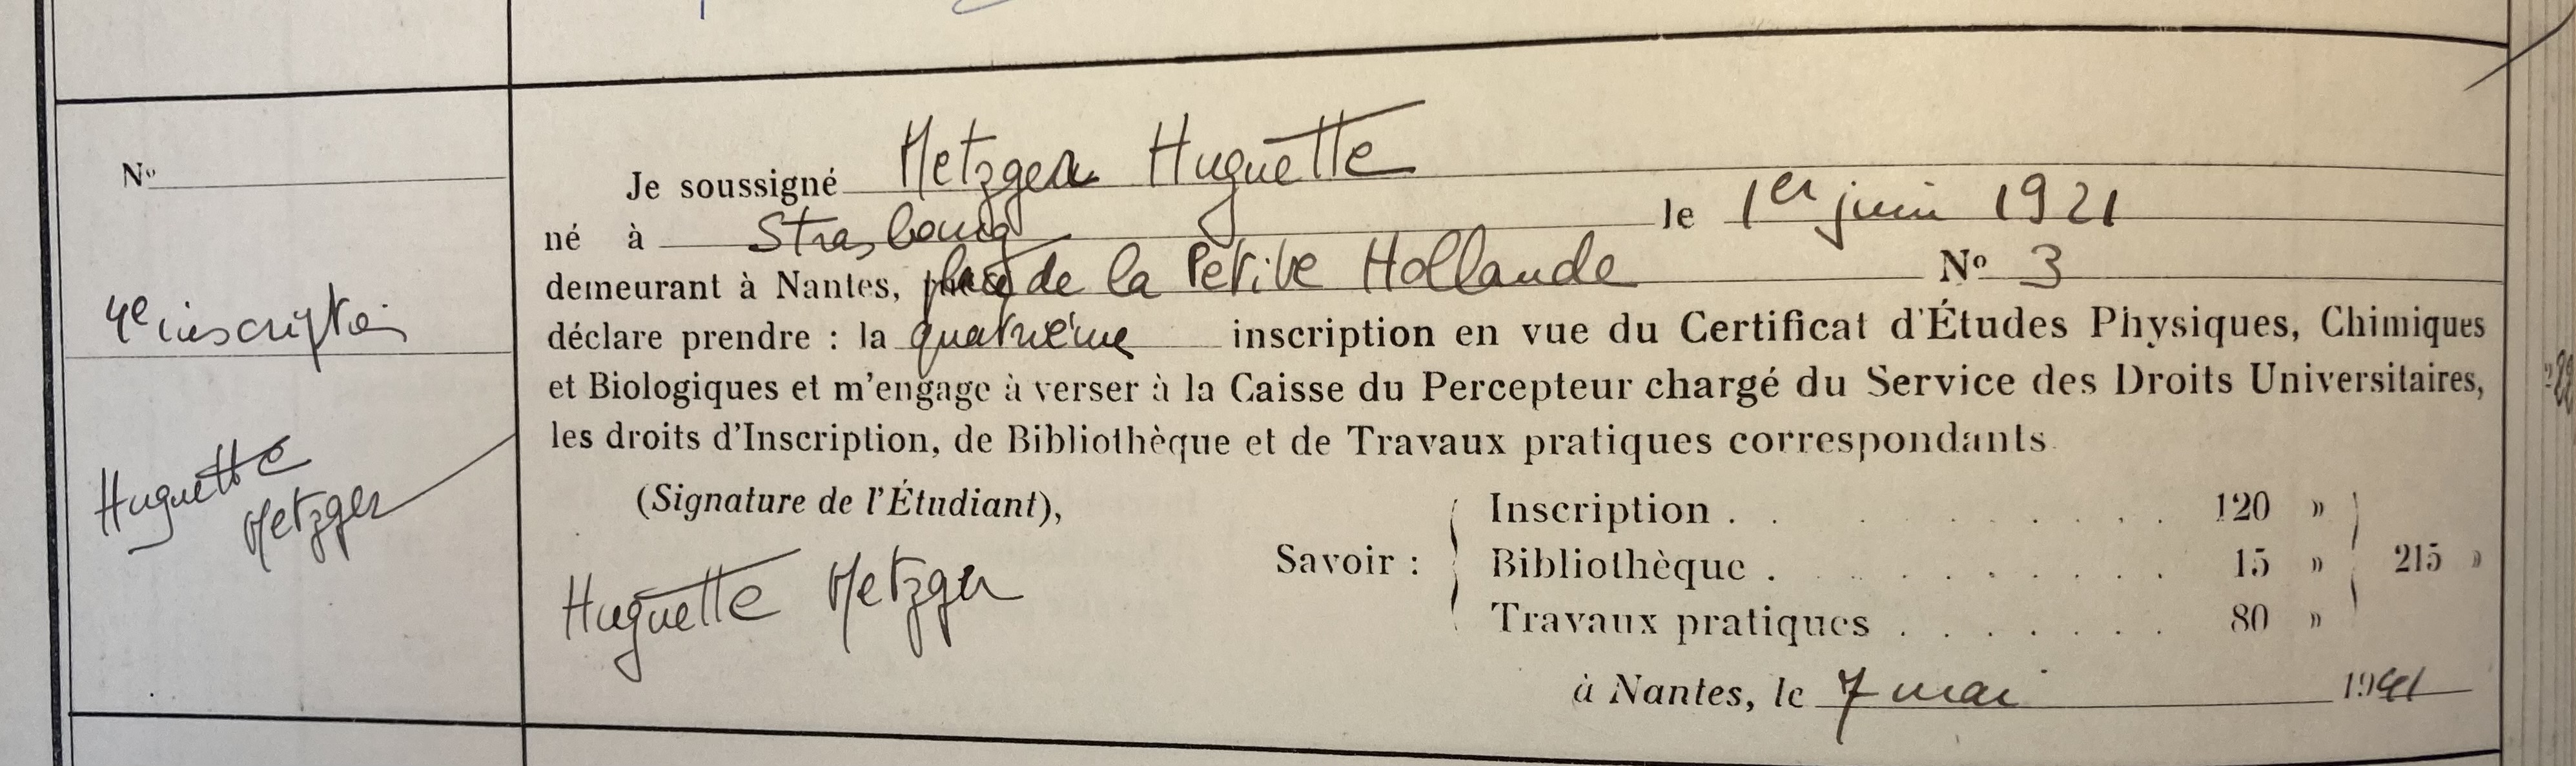 Nº
4e inscription
Huguette
Metzger
Je soussigné Metzger Huguette
né à Strasbourg le 1er juin 1921
demeurant à Nantes, place de la Petite Hollande Nº 3
déclare prendre : la quatrième inscription en vue du Certificat d'Études Physiques, Chimiques
et Biologiques et m'engage à verser à la Caisse du Percepteur chargé du Service des Droits Universitaires,
les droits d'Inscription, de Bibliothèque et de Travaux pratiques correspondants.
(Signature de l'Étudiant),
Huguette Metzger
Savoir :
Inscription . . . . . . . . . 120 »
Bibliothèque . . . . . . . . . 15 » 215 »
Travaux pratiques . . . . . . . 80 »
à Nantes, le 7 mai 1941